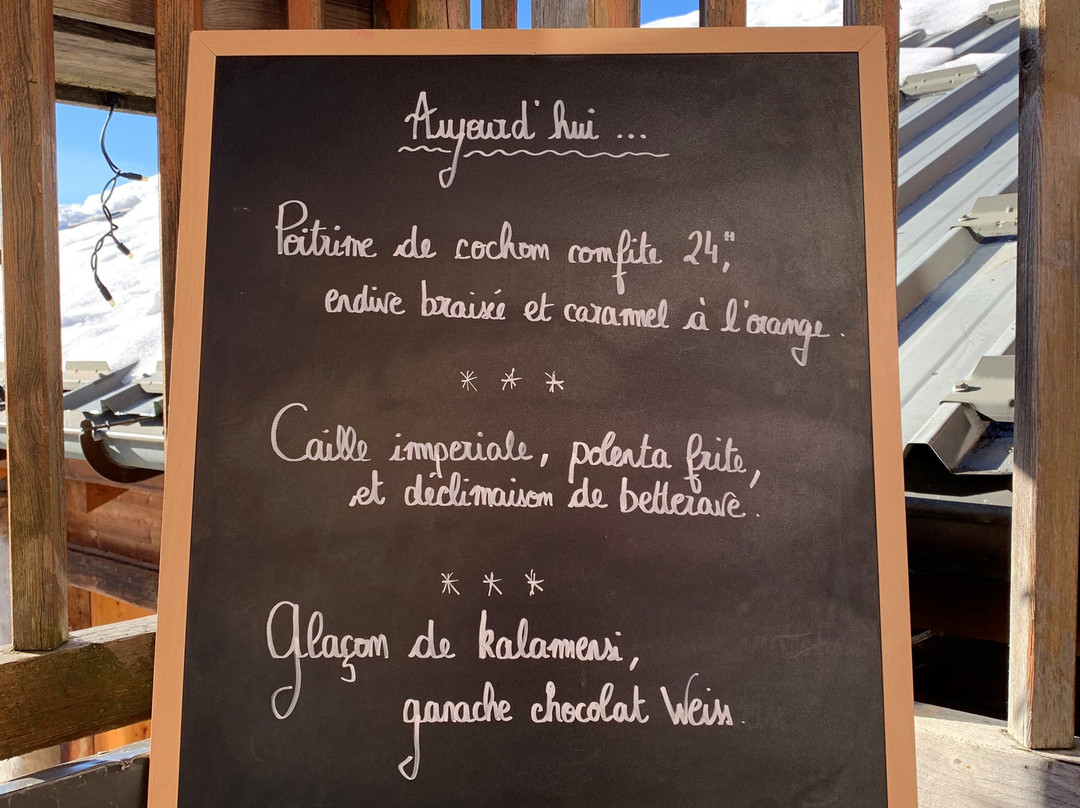 Aujourd'hui ...
Poitrine de cochon confite 24",
endive braisé et caramel à l'orange.
* * *
Caille imperiale, polenta frite,
et déclinaison de betterave.
* * *
Glaçon de kalamensi,
ganache chocolat Weiss.